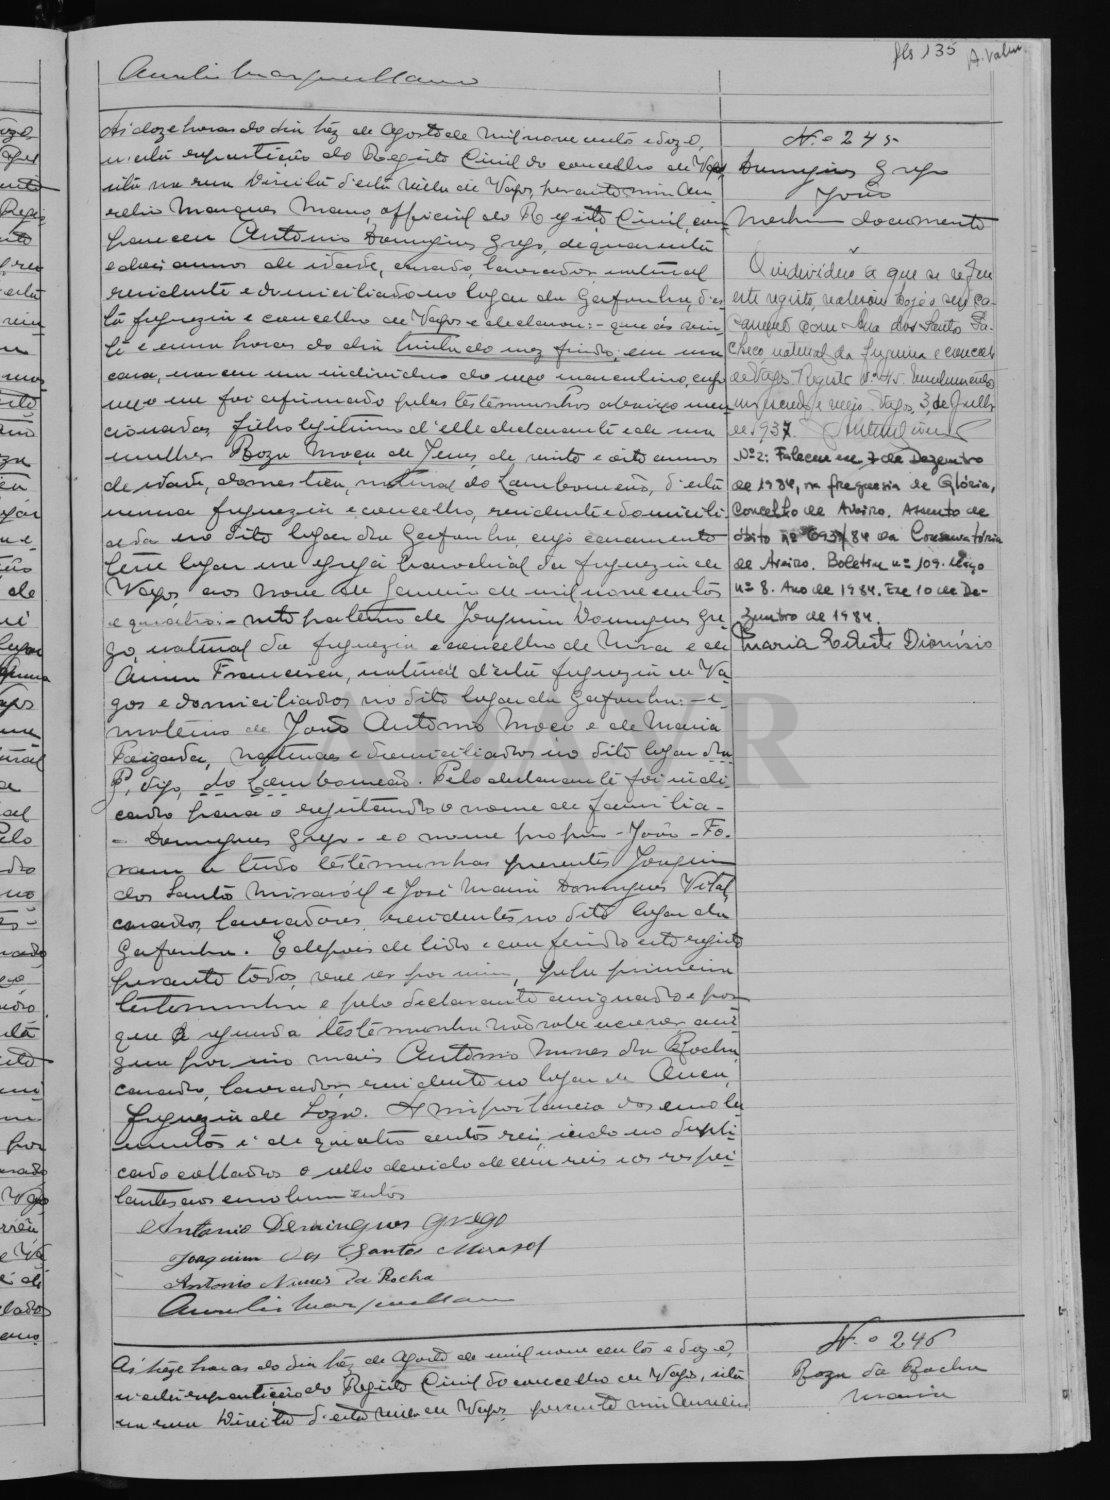 fls 135 A. Valen
Aurelio Marques Mano
Ás doze horas do dia trez de Agosto de mil nove centos e doze,
n'esta repartição do Registo Civil do concelho de Vagos,
sita na rua Direita d'esta villa de Vagos, perante mim Au
relio Marques Mano, official do Registo Civil, com-
pareceu Antonio Domingues Grego, de quarenta
e dois annos de idade, casado, lavrador, natural
residente e domiciliado no logar da Gafanha, d'es-
ta freguezia e concelho de Vagos e declarou: - que ás vin-
te e uma horas do dia trinta do mez findo, em sua
casa, nasceu um individuo do sexo masculino, cujo
sexo me foi afirmado pelas testemunhas abaixo men
cionadas, filho legitimo d'elle declarante e de sua
mulher Roza Moça de Jesus, de vinte e oito annos
de idade, domestica, natural do Lombomeão, d'esta
mesma freguezia e concelho, residente e domicili
ada no dito logar da Gafanha, cujo casamento
teve logar na egreja parochial da freguezia de
Vagos, aos nove de Janeiro de mil nove centos
e quatro: - neto paterno de Joaquim Domingues Gre
go, natural da freguezia e concelho de Mira e de
Anna Francisca, natural d'esta freguezia de Va
gos e domiciliados no dito logar da Gafanha: - e
materno de João Antonio Moço e de Maria
naturaes e domiciliados no dito logar da
P, digo, do Lombomeão. Pelo declarante foi indi
cado para o registando o nome de familia -
- Domingues Grego - e o nome proprio - João - Fo-
ram a tudo testemunhas presentes Joaquim
dos Santos Mirasól e José Maria Domingues Vital,
casados, lavradores, residentes no dito logar da
Gafanha. E depois de lido e conferido este registo
perante todos, vae ser por mim, pela primeira
testemunha e pelo declarante assignado e por
que a segunda testemunha não sabe escrever assi
gna por seu mais Antonio Nunes da Rocha
casado, lavrador, residente no logar de
freguezia de Soza. A importancia dos emolu
mentos é de quatro centos reis, indo no dupli
cado collados o sello devido de cem reis e os respei
tantes aos emolumentos
Antonio Domingues Grego
Joaquim dos Santos Mirasol
Antonio Nunes da Rocha
Aurelio Marques Mano
Ás treze horas do dia trez de Agosto de mil nove centos e doze,
n'esta repartição do Registo Civil do concelho de Vagos, sita
na rua Direita d'esta villa de Vagos, perante mim Aurelio
N.º 245
Domingues Grego
João
Nenhum documento
O individuo a que se refere
este registo realisou hoje o seu ca-
samento com dos Santos Pa-
checo, natural da freguesia e concelho
de Vagos. Registo nº 45. Emolumentos
Vagos, 3 de Julho
de 1937.
Nº 2: Faleceu em 7 de Dezembro
de 1984, na freguesia de Glória,
Concelho de Aveiro. Assento de
óbito nº 693/84 da Conservatória
de Aveiro. Boletim nº 109. Maço
nº 8. Ano de 1984. Em 10 de De-
zembro de 1984.
Maria Dionísio
N.º 246
Roza da Rocha
Maria